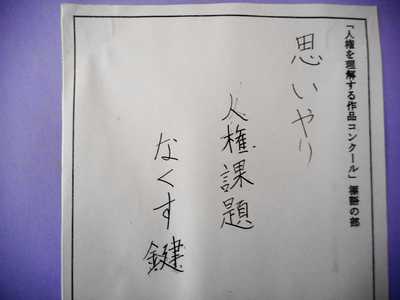 「人権を理解する作品コンクール」標語の部
思いやり
人権課題
なくす鍵